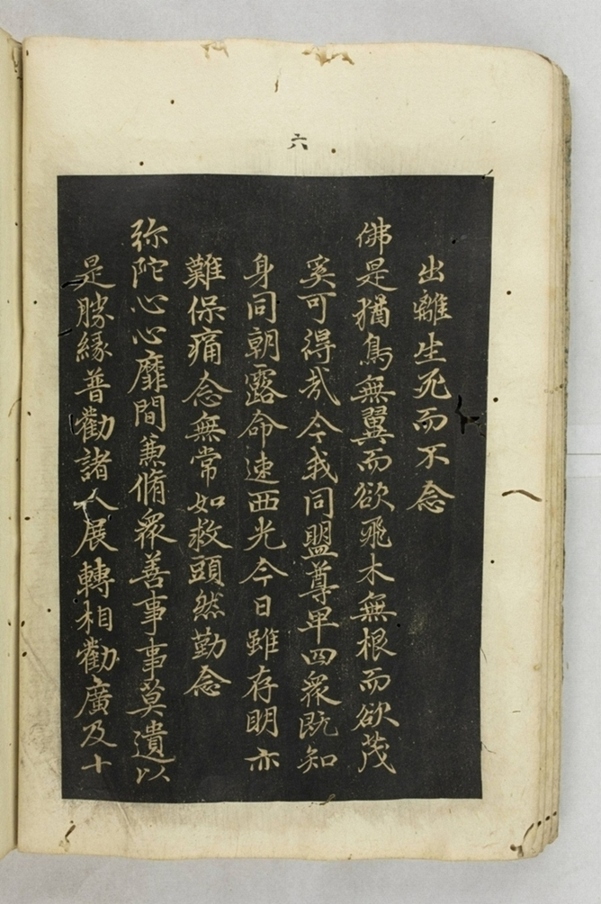 六
出離生死而不念
佛是猶鳥無翼而欲飛木無根而欲茂
奚可得㦲今我同盟尊卑四衆既知
身同朝露命速西光今日雖存明亦
難保痛念無常如救頭然勤念
弥陀心心靡間兼脩衆善事事莫遺以
是勝緣普勸諸人展轉相勸廣及十